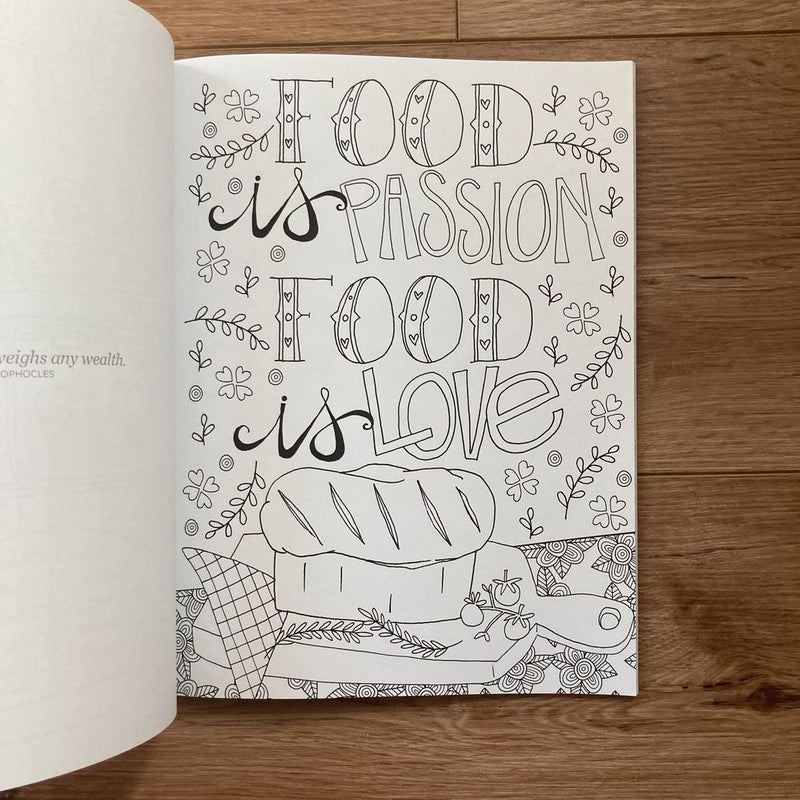 veighs any wealth.
OPHOCLES
FOOD
is PASSION
FOOD
is LOVE